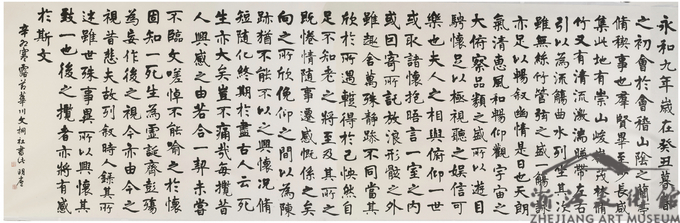 永和九年歲在癸丑暮春
之初會於會稽山陰之蘭亭
脩稧事也群賢畢至少長咸
集此地有崇山峻領茂林脩
竹又有清流激湍暎帶左右
引以為流觴曲水列坐其次
雖無絲竹管弦之盛一觴一詠
亦足以暢敘幽情是日也天朗
氣清惠風和暢仰觀宇宙之
大俯察品類之盛所以遊目
騁懷足以極視聽之娛信可
樂也夫人之相與俯仰一世
或取諸懷抱晤言一室之內
或因寄所託放浪形骸之外
雖趣舍萬殊靜躁不同當其
欣於所遇輒得於己怏然自
足不知老之將至及其所之
既惓情隨事遷感慨係之矣
向之所欣俛仰之間以為陳
跡猶不能不以之興懷況脩
短隨化終期於盡古人云死
生亦大矣豈不痛哉每攬昔
人興感之由若合一契未嘗
不臨文嗟悼不能喻之於懷
固知一死生為虛誕齊彭殤
為妄作後之視今亦由今之
視昔悲夫故列敘時人錄其所
述雖世殊事異所以興懷其
致一也後之攬者亦將有感
於斯文
辛卯寒露前華川文桐
浙江美術館
ZHEJIANG ART MUSEUM